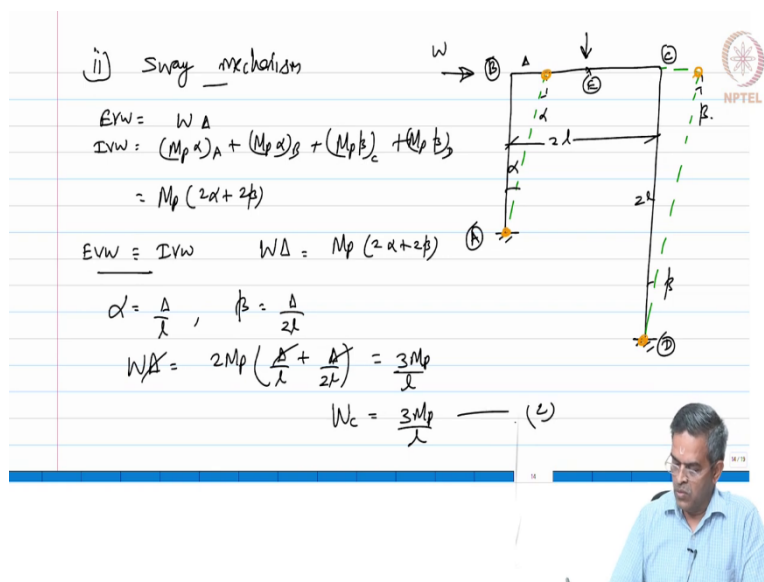 ii) Sway mechanism
EVW = WΔ
IVW = (Mp α)A + (Mp α)B + (Mp β)C + (Mp β)D
= Mp (2α+2β)
EVW = IVW WΔ = Mp (2α+2β)
α = Δ/l , β = Δ/2l
WΔ = 2Mp (Δ/l + Δ/2l) = 3Mp/l
Wc = 3Mp/l —— (2)
W
B Δ E C
α β
2l
α 2l
A
β
D
NPTEL
14 / 19
14